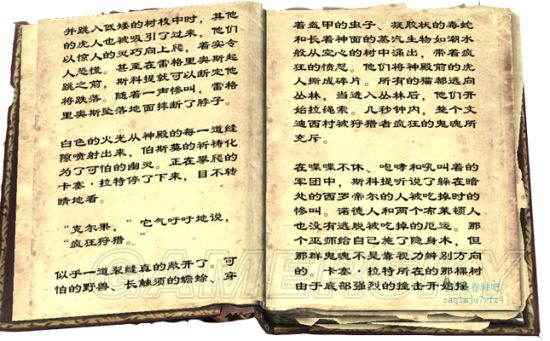 并跳入低矮的树枝中时，其他
的虎人也被吸引了过来，他们
以惊人的灵巧向上爬，着实令
人恐慌。甚至在雷格里奥斯起
跳之前，斯科提就可以断定他
将跌落。随着一声惨叫，雷格
里奥斯坠落地面摔断了脖子。
白色的火光从神殿的每一道缝
隙喷射出来，伯斯莫的祈祷化
为了可怕的幽灵。正在攀爬的
卡塞·拉特停了下来，目不转
睛地看。
“克尔果，”它气吁吁地说，
“疯狂狩猎。”
似乎一道裂缝真的敞开了。可
怕的野兽、长触须的蟾蜍、穿
着盔甲的虫子、凝胶状的毒蛇
和长着神面的蒸汽生物如潮水
般从空心的树中涌出，带着疯
狂的愤怒。他们将神殿前的虎
人撕成碎片。所有的猫都逃向
丛林，当进入丛林后，他们开
始拉绳索。几秒钟内，整个文
迪西村被狩猎者疯狂的鬼魂所
充斥。
在喋喋不休、咆哮和吼叫着的
军团中，斯科提听说了躲在暗
处的西罗帝尔的人被吃掉时的
惨叫。诺德人和两个布莱顿人
也没有逃脱被吃掉的厄运。那
个巫师给自己施了隐身术，但
那群鬼魂不是靠视力辨别方向
的。卡塞·拉特所在的那棵树
由于底部强烈的撞击开始摇
GAMERSKY
zaqlmju7vfr4